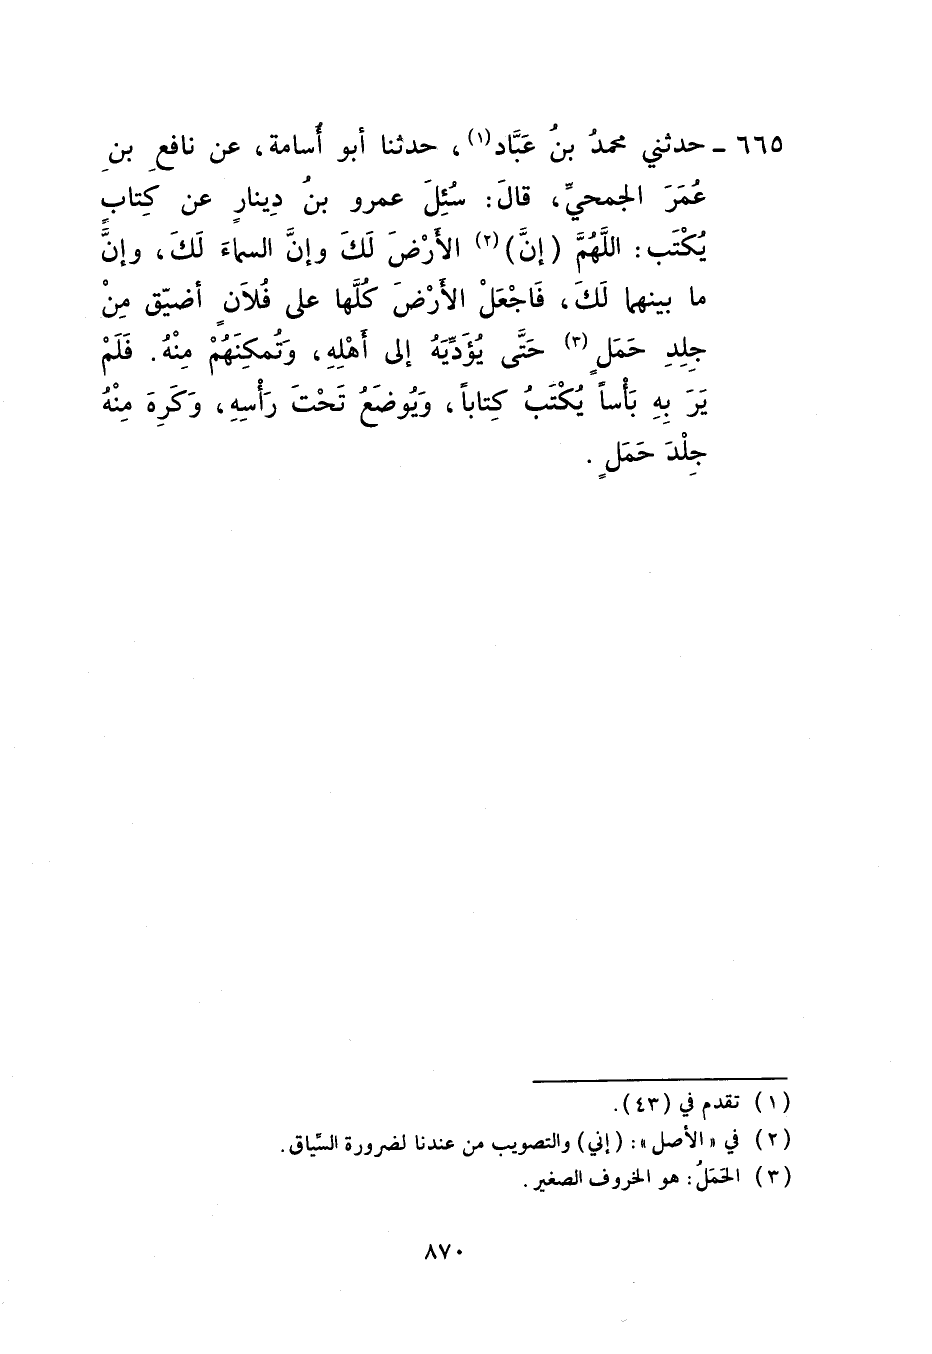 ٦٦٥ ـ حدثني محمدُ بنُ عَبَّاد(١)، حدثنا أبو أُسامة، عن نافعِ بنِ
عُمَرَ الجمحيِّ، قالَ: سُئِلَ عمرو بنُ دِينارٍ عن كِتابٍ
يُكْتَب: اللَّهُمَّ (إنَّ)(٢) الأَرْضَ لَكَ وإنَّ السماءَ لَكَ، وإنَّ
ما بينهما لَكَ، فَاجْعَلْ الأَرْضَ كُلَّها على فُلاَنٍ أضيّق مِنْ
جِلِدِ حَمَلٍ(٣) حَتَّى يُؤَدِّيَهُ إلى أَهْلِهِ، وَتُمكِنَهُمْ مِنْهُ. فَلَمْ
يَرَ بِهِ بَأْساً يُكْتَبُ كِتاباً، وَيُوضَعُ تَحْتَ رَأْسِهِ، وَكَرِهَ مِنْهُ
جِلْدَ حَمَلٍ.
(١) تقدم في (٤٣).
(٢) في «الأصل»: (إني) والتصويب من عندنا لضرورة السِّياق.
(٣) الحَمَلُ: هو الخروف الصغير.
٨٧٠